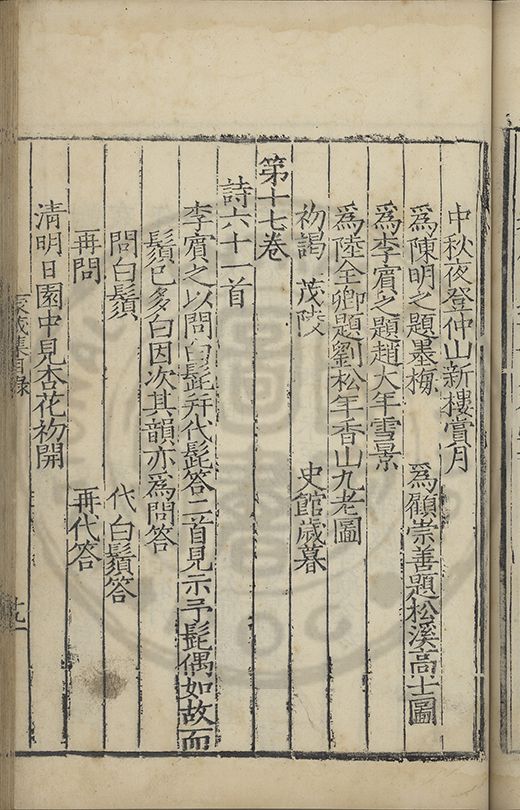 中秋夜登仲山新樓賞月
爲陳明之題墨梅 爲顧崇善題松溪高士圖
爲李賓之題趙大年雪景
爲陸全卿題劉松年香山九老圖
初謁 茂陵 史館歲暮
第十七卷
詩六十一首
李賓之以問白髭并代髭答二首見示予髭偶如故而
鬚已多白因次其韻亦爲問答
問白鬚 代白鬚答
再問 再代答
清明日園中見杏花初開
家藏集目錄